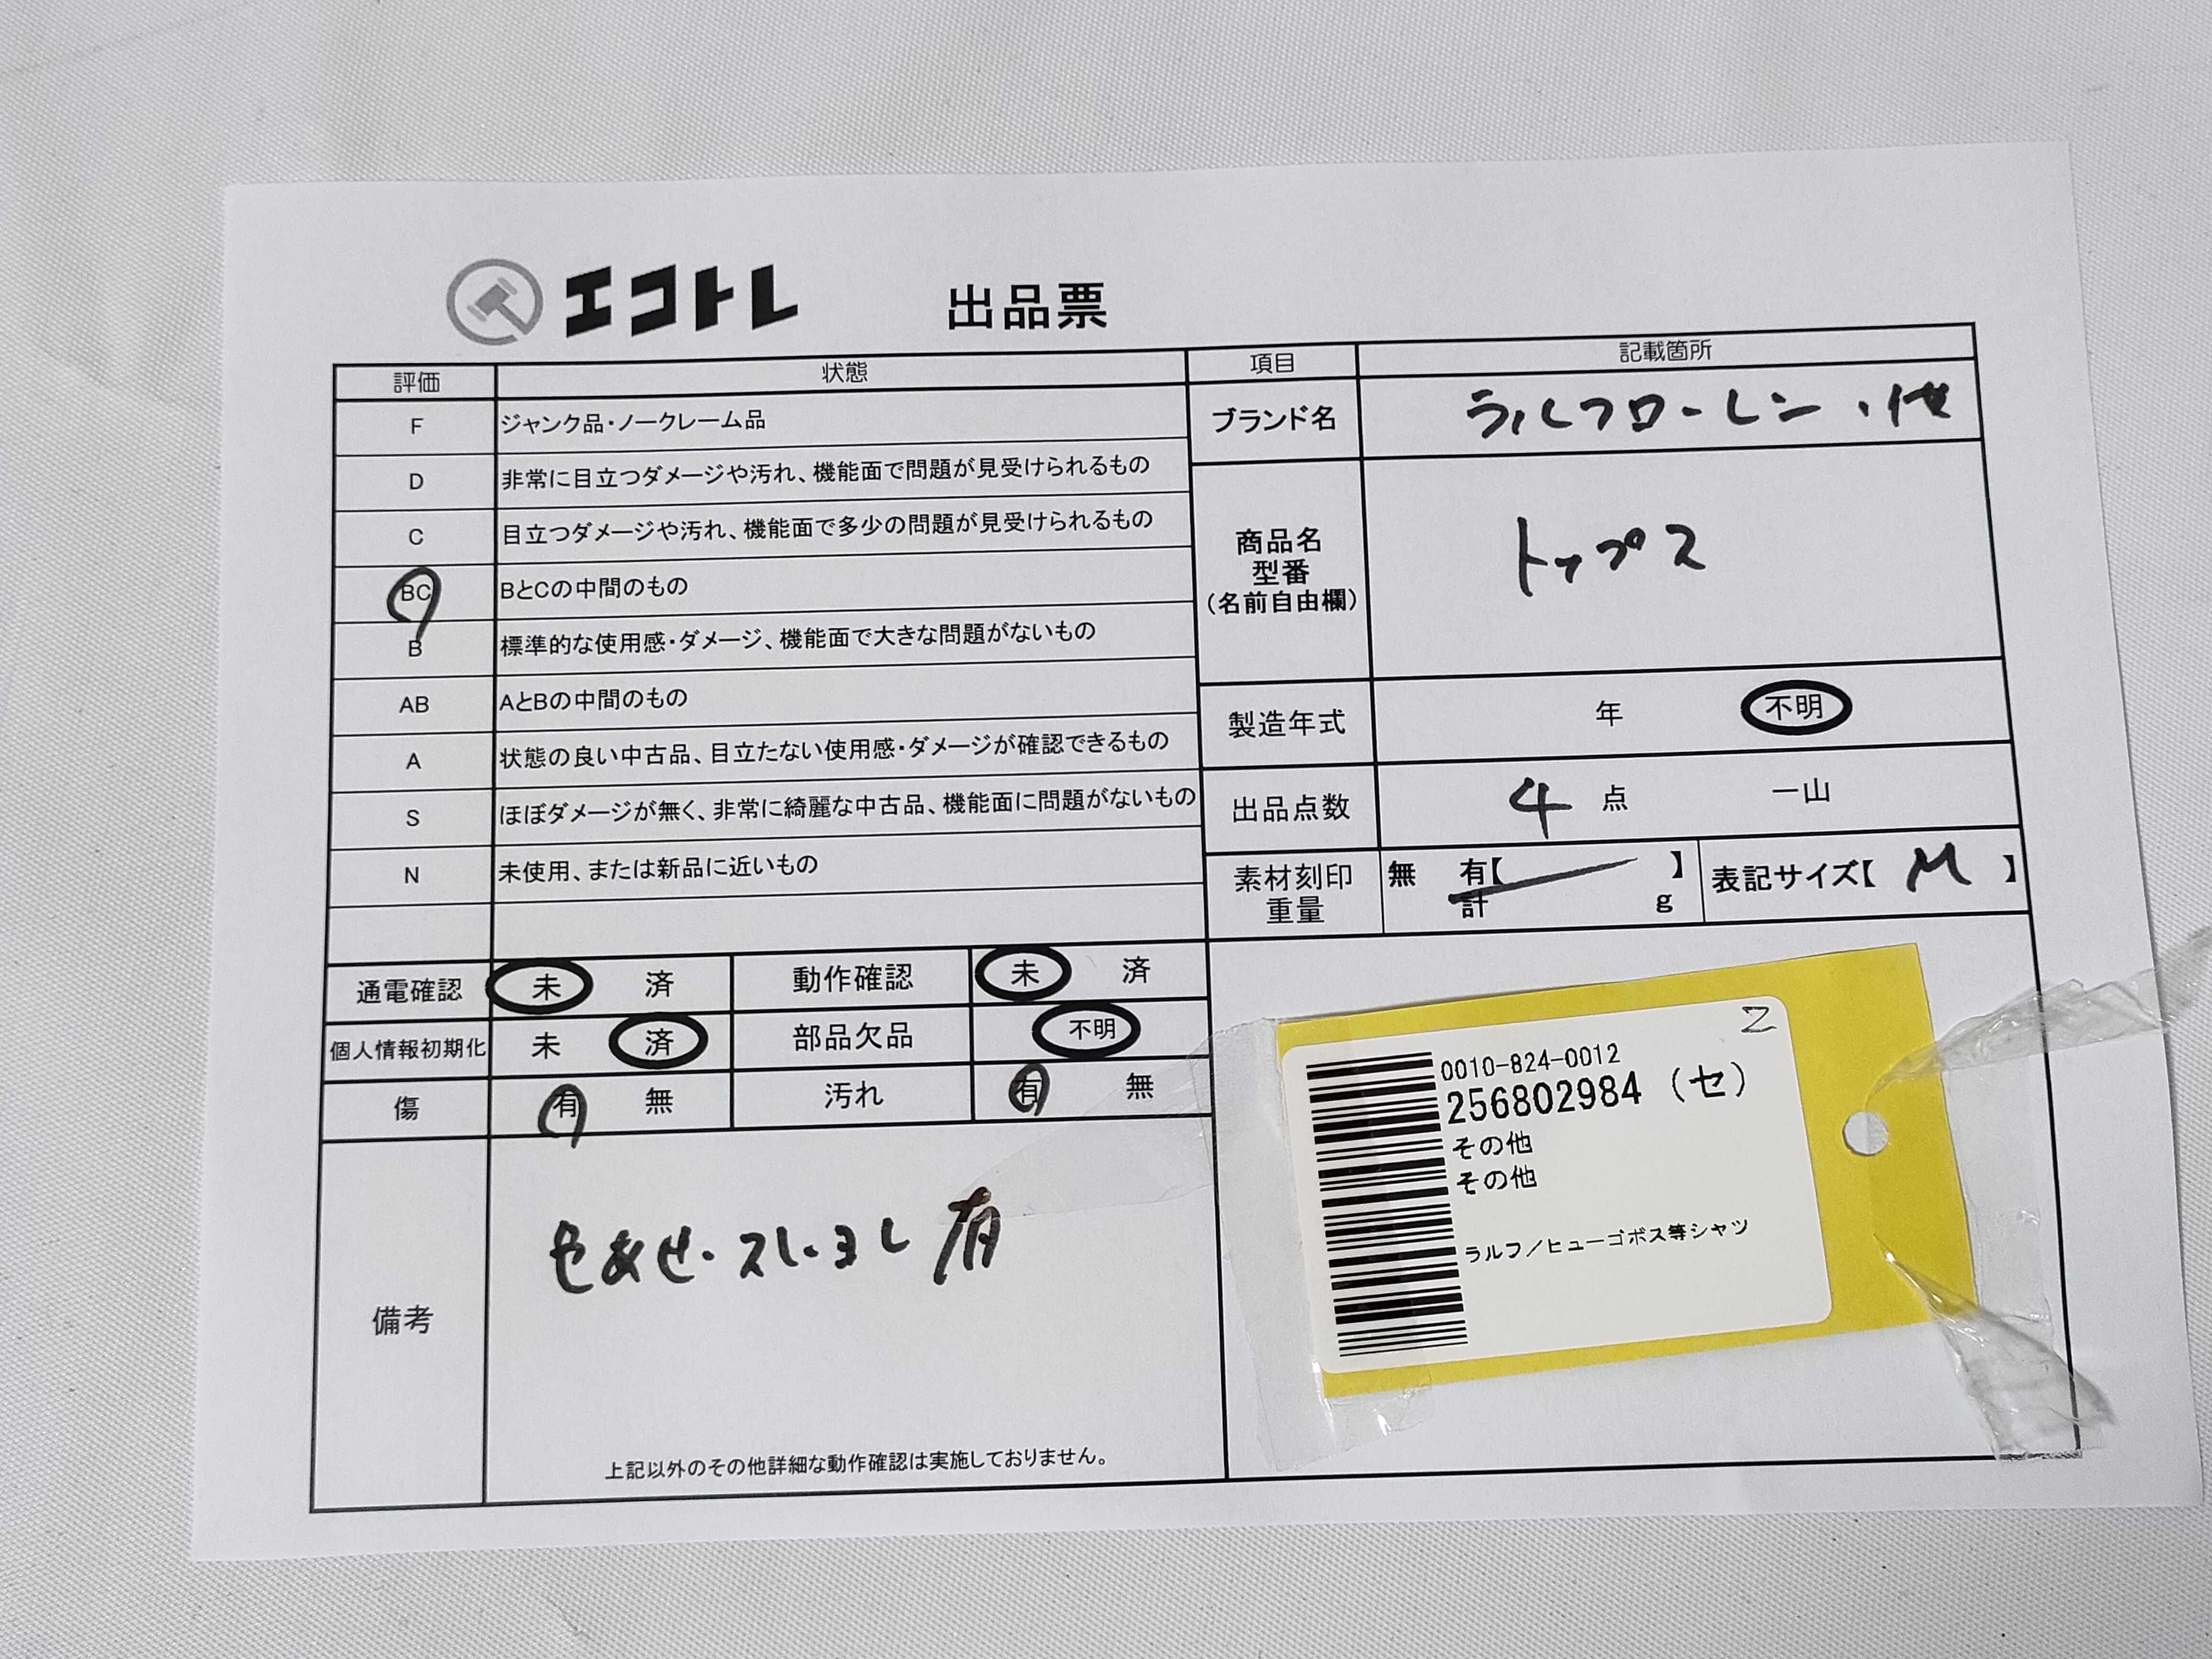 エコトレ 出品票
評価 状態
F ジャンク品・ノークレーム品
D 非常に目立つダメージや汚れ、機能面で問題が見受けられるもの
C 目立つダメージや汚れ、機能面で多少の問題が見受けられるもの
BC BとCの中間のもの
B 標準的な使用感・ダメージ、機能面で大きな問題がないもの
AB AとBの中間のもの
A 状態の良い中古品、目立たない使用感・ダメージが確認できるもの
S ほぼダメージが無く、非常に綺麗な中古品、機能面に問題がないもの
N 未使用、または新品に近いもの
項目 記載箇所
ブランド名 ラルフローレン・他
商品名
型番
(名前自由欄)
トップス
製造年式 年 不明
出品点数 4 点 一山
素材刻印 無 有【 】
重量 計 g
表記サイズ【 M 】
通電確認 未 済 動作確認 未 済
個人情報初期化 未 済 部品欠品 不明
傷 有 無 汚れ 有 無
備考
有
上記以外のその他詳細な動作確認は実施しておりません。
Z
0010-824-0012
256802984 (セ)
その他
その他
ラルフ/ヒューゴボス等シャツ